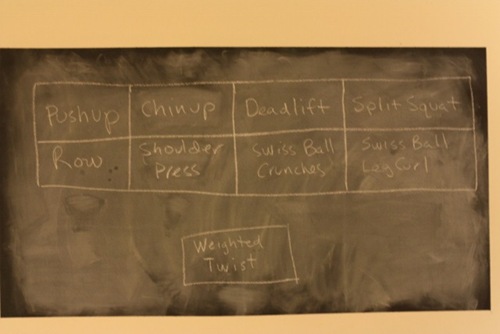 Pushup Chinup Deadlift Split Squat
Row Shoulder Press Swiss Ball Crunches Swiss Ball Leg Curl
Weighted
Twist